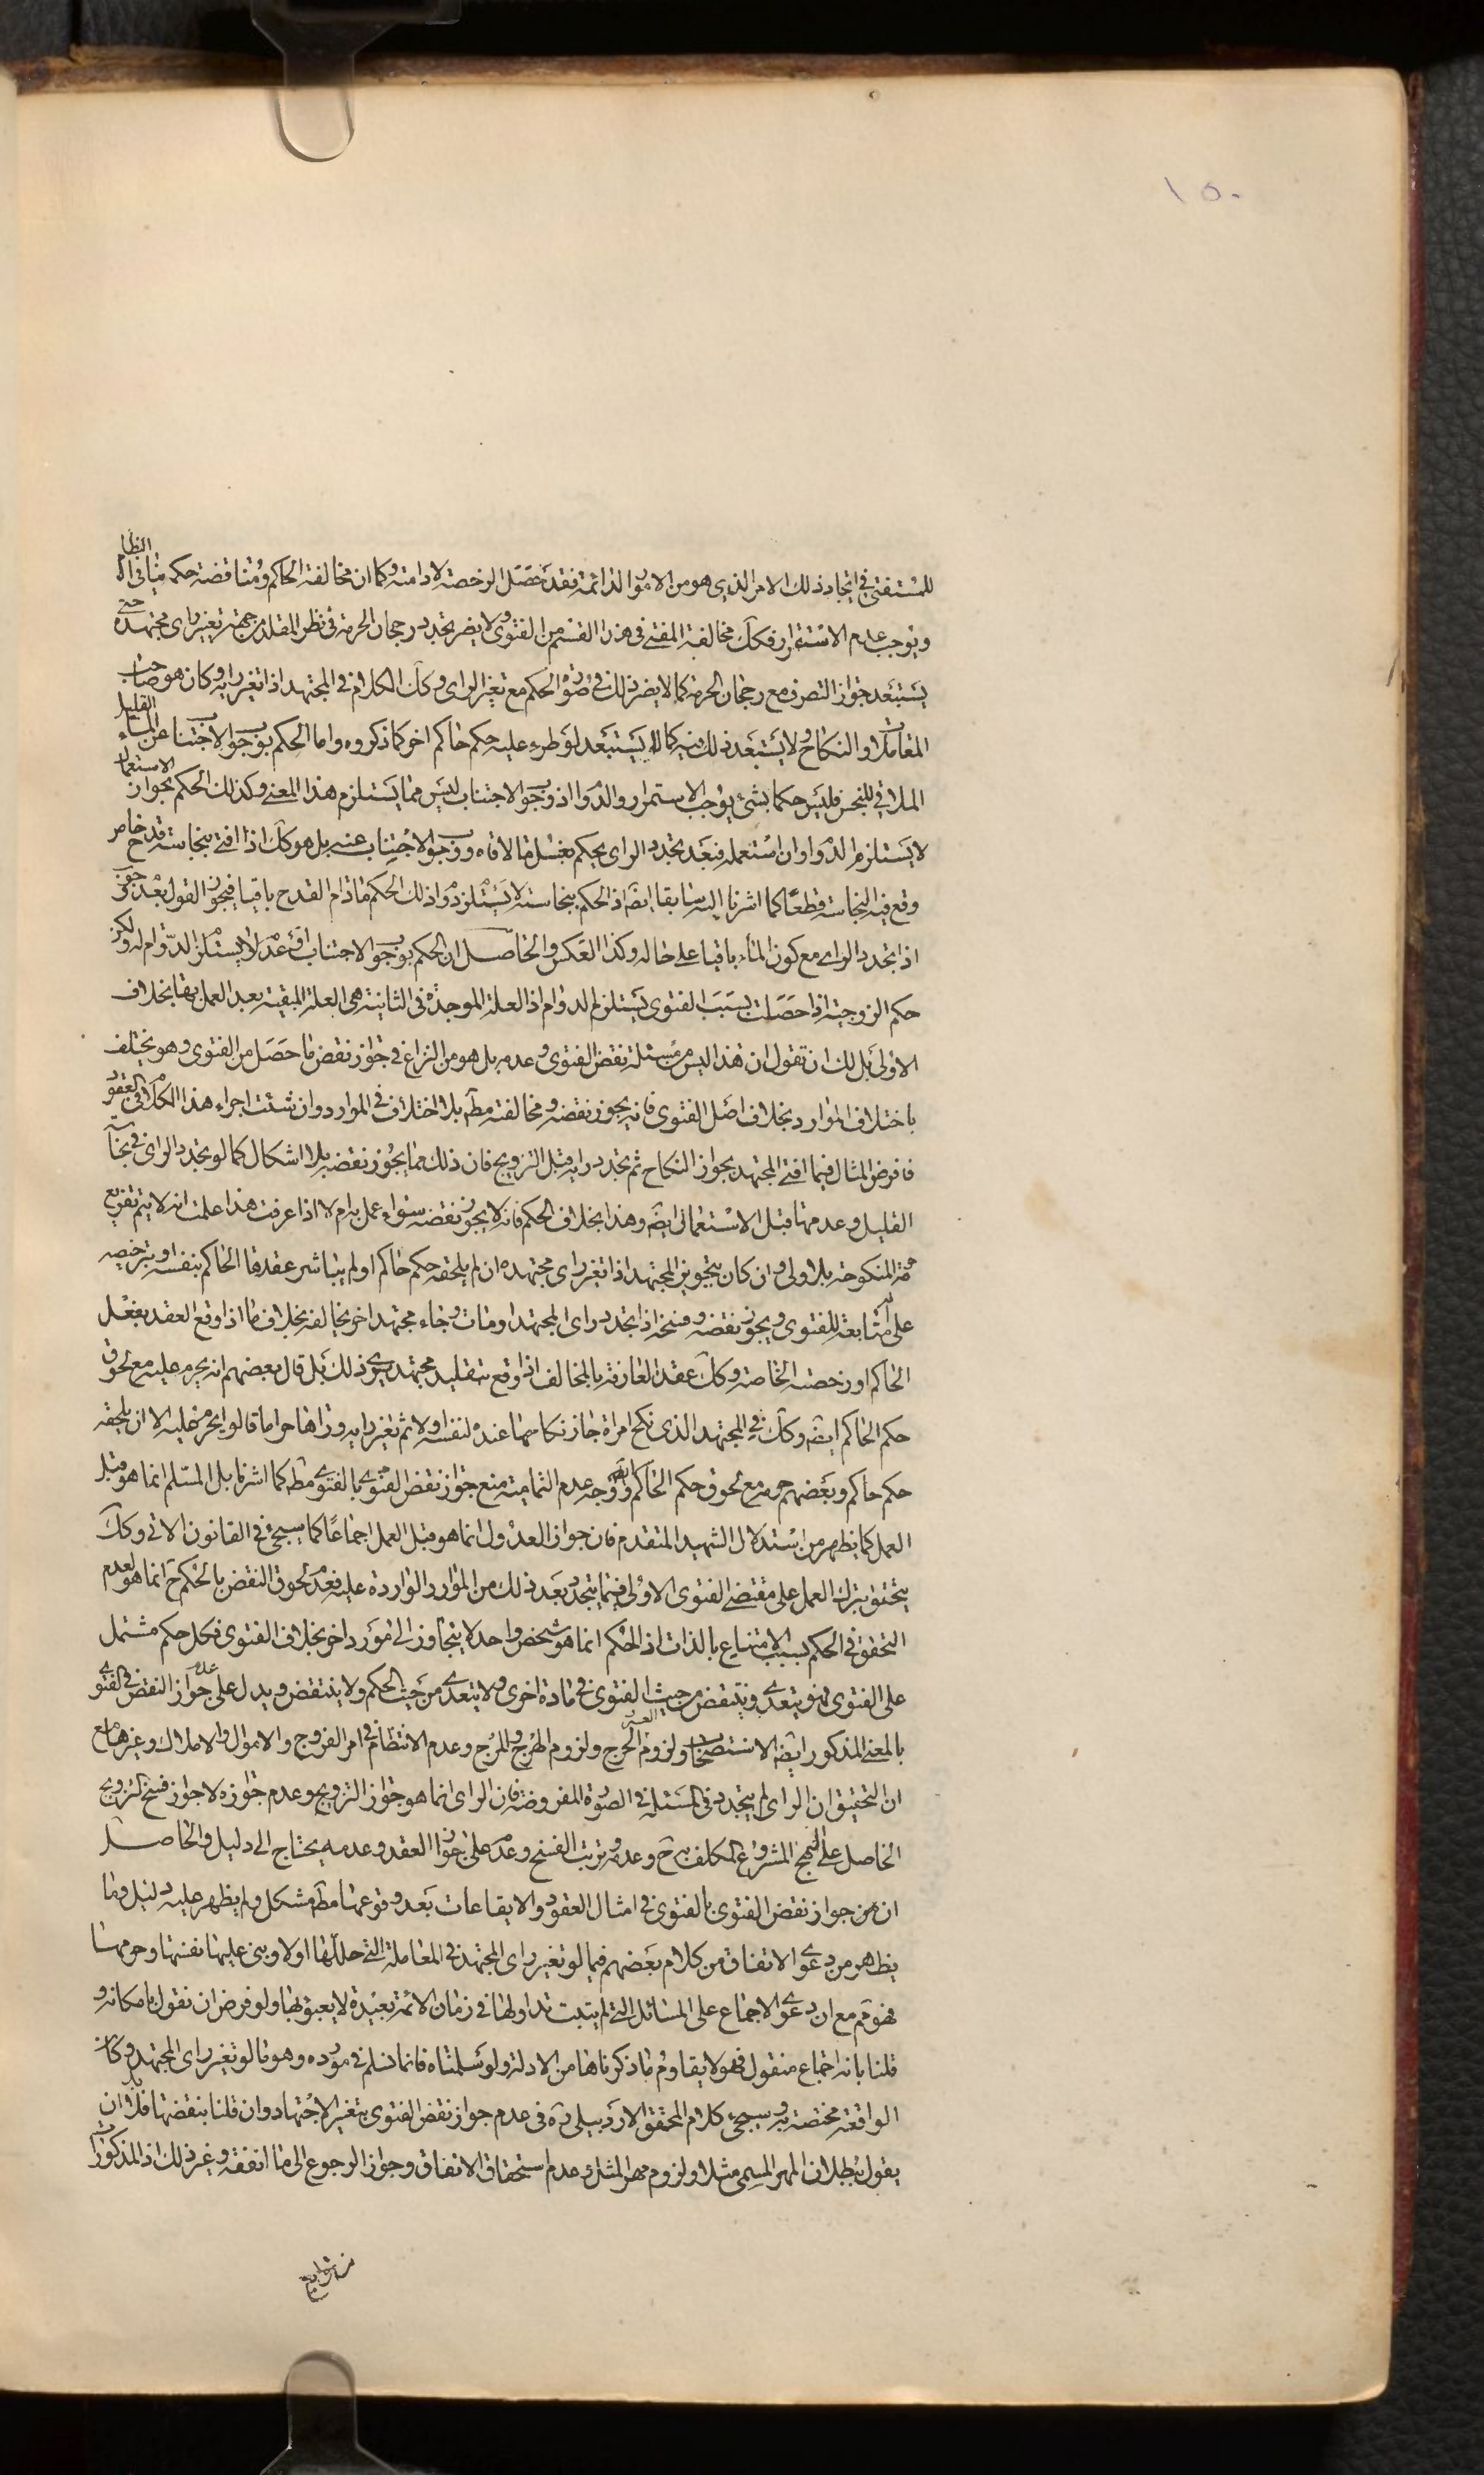 ١٥٠
للمستفتى فى ايجاد ذلك الامر الذى هو من الامور الدائمة فقد حصل الرخصة لادامته وكما ان مخالفة الحاكم ومناقضة حكمه ينافى النظام
ويوجب عدم الاستمرار فكك مخالفة المفتى فى هذا القسم من الفتوى ولا يضر تجدد رجحان الحرمة فى نظر المقلد من جهة تغير راى مجتهده حتى
يستبعد جواز التصرف مع رجحان الحرمة كما لا يضر ذلك فى صورة الحكم مع تغير الراى وكك الكلام فى المجتهد اذا تغير رايه وكان هو صاحب
المعاملة او النكاح ولا يستبعد ذلك منه كما لا يستبعد لو طرء عليه حكم حاكم اخر كما ذكروه واما الحكم بوجوب الاجتناب عن الماء القليل
الملاقى للنجس فليس حكما بشئ يوجب الاستمرار والدوام اذ وجوب الاجتناب ليس مما يستلزم هذا المعنى وكذلك الحكم بجواز الاستعمال
لا يستلزم الدوام وان استعمله فبعد تجدد الراى يحكم بغسل ما لاقاه ووجوب الاجتناب عنه بل هو كك اذا افتى بنجاسة قدح خاص
وقع فيه النجاسة قطعا كما اشرنا اليه سابقا ايضا اذ الحكم بنجاسته لا يستلزم دوام ذلك الحكم ما دام القدح باقيا فيجوز القول بعد
اذا تجدد الراى مع كون الماء باقيا على حاله وكذا العكس والحاصل ان الحكم بوجوب الاجتناب او عدمه لا يستلزم الدوام له ولكن
حكم الزوجية اذا حصلت بسبب الفتوى يستلزم الدوام اذ العلة الموجدة فى الثانية هى العلة المبقية بعد العمل بها بخلاف
الاولى بل لك ان تقول ان هذا ليس من مسئلة نقض الفتوى وعدمه بل هو من النزاع فى جواز نقض ما حصل من الفتوى وهو يختلف
باختلاف الموارد بخلاف اصل الفتوى فانه يجوز نقضه ومخالفته مط بلا اختلاف فى الموارد وان شئت اجراء هذا الكلام فى العقود
فافرض المثال فيما افتى المجتهد بجواز النكاح ثم تجدد رايه قبل التزويج فان ذلك مما يجوز نقضه بلا اشكال كما لو تجدد الراى فى نجاسة
القليل وعدمها قبل الاستعمال ايضا وهذا بخلاف الحكم فانه لا يجوز نقضه سواء عمل به ام لا اذا عرفت هذا علمت انه لا يتم تفريع
حرمة المنكوحة بلا ولى وان كان بتجويز المجتهد اذا تغير راى مجتهده ان لم يلحقه حكم حاكم او لم يباشر عقدها الحاكم بنفسه او بترخيصه
على انه متابعة للفتوى ويجوز نقضه وفسخه اذا تجدد راى المجتهد او مات وجاء مجتهد اخر يخالفه بخلاف ما اذا وقع العقد بفعل
الحاكم او رخصته الخاصة وكك عقد العارفة بالمخالف اذا وقع بتقليد مجتهد يرى ذلك بل قال بعضهم انه يحرم عليه مع لحوق
حكم الحاكم ايضا وكك فى المجتهد الذى نكح امراة جاز نكاحها عنده لنفسه اولا ثم تغير رايه وراها حراما قالوا يحرم عليه الا ان يلحقه
حكم حاكم وبعضهم حرمه مع لحوق حكم الحاكم ايضا ووجه عدم التمامية منع جواز نقض الفتوى بالفتوى مط كما اشرنا بل المسلم انما هو قبل
العمل كما يظهر من استدلال الشهيد المتقدم فان جواز العدول انما هو قبل العمل اجماعا كما سيجئ فى القانون الاتى وكك
يتحقق بترك العمل على مقتضى الفتوى الاولى فيما يتجدد بعد ذلك من الموارد الواردة عليه فعدم لحوق النقض بالحكم ح انما هو لعدم
التحقق فى الحكم بسبب الامتناع بالذات اذ الحكم انما هو شخص واحد لا يتجاوز الى مورد اخر بخلاف الفتوى فكل حكم مشتمل
على الفتوى فهو يتعدى وينتقض من حيث الفتوى فى مادة اخرى ولا يتعدى من حيث الحكم ولا ينتقض ويدل على عدم جواز النقض فى الفتوى
بالمعنى المذكور ايضا الاستصحاب ولزوم العسر والحرج ولزوم الهرج والمرج وعدم الانتظام فى امر الفروج والاموال والاملاك وغيرها مع
ان التحقيق ان الراى لم يتجدد فى المسئلة فى الصورة المفروضة فان الراى انما هو جواز التزويج وعدم جوازه لا جواز فسخ التزويج
الحاصل على النهج المشروع المكلف به ح وعدمه وترتب الفسخ وعدمه على جواز العقد وعدمه يحتاج الى دليل والحاصل
ان من جواز نقض الفتوى بالفتوى فى امثال العقود والايقاعات بعد وقوعها مط مشكل ولم يظهر عليه دليل وما
يظهر من دعوى الاتفاق من كلام بعضهم فيما لو تغير راى المجتهد فى المعاملة التى حللها اولا وبنى عليها نفيها وحرمها
فهو مم مع ان دعوى الاجماع على المسائل التى لم يثبت تداولها فى زمان الائمة بعيدة لا يعبؤ بها ولو فرض ان نقول بامكانه و
قلنا بانه اجماع منقول فهو لا يقاوم ما ذكرناها من الادلة ولو سلمناه فانما نسلم فى مورده وهو ما لو تغير راى المجتهد وكان
الواقعة مختصة به وسيجئ كلام المحقق الاردبيلى ره فى عدم جواز نقض الفتوى بتغير الاجتهاد وان قلنا بنقضها فلا بد ان
يقول ببطلان المهر المسمى مثلا ولزوم مهر المثل وعدم استحقاق الانفاق وجواز الرجوع الى ما انفقه وغير ذلك اذ المذكورات